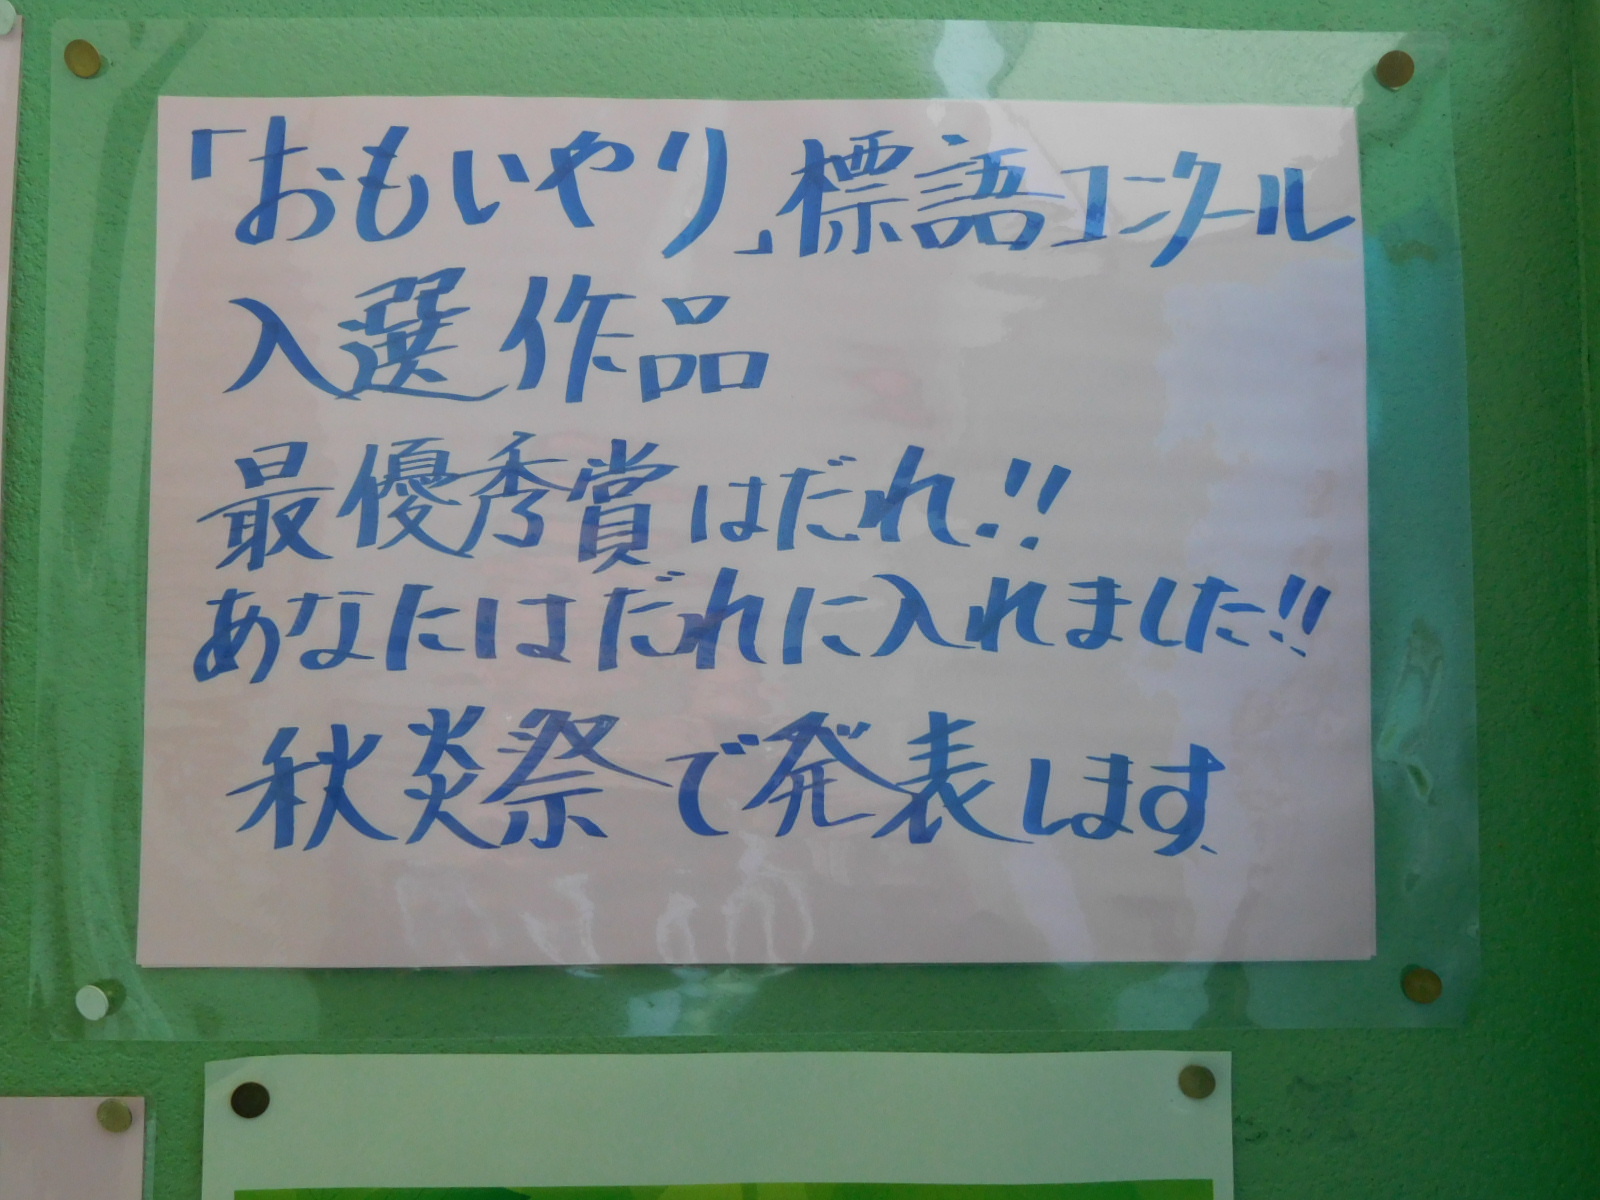 「おもいやり」標語コンクール
入選作品
最優秀賞はだれ!!
あなたはだれに入れました!!
秋炎祭で発表します